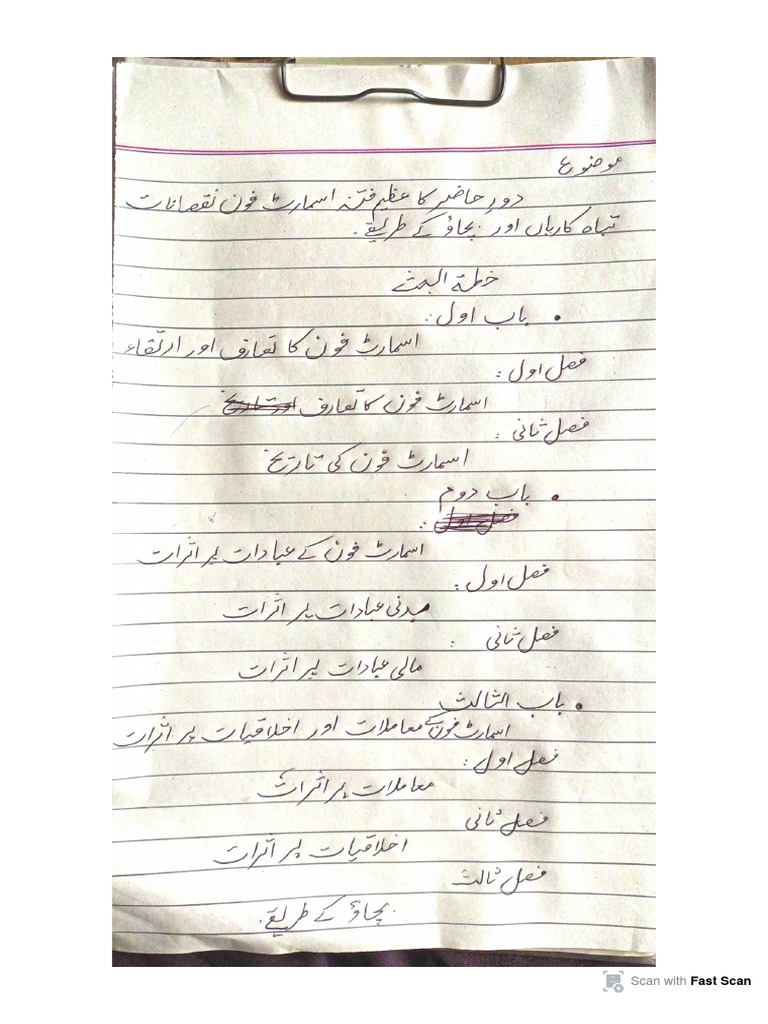 موضوع
دورِ حاضر کا عظیم فتنہ اسمارٹ فون نقصانات
تباہ کاریاں اور بچاؤ کے طریقے.
خطۃ البحث
• باب اول :
اسمارٹ فون کا تعارف اور ارتقاء
فصل اول :
اسمارٹ فون کا تعارف اور تاریخ
فصل ثانی :
اسمارٹ فون کی تاریخ
• باب دوم
فصل اول :
اسمارٹ فون کے عبادات پر اثرات
فصل اول :
بدنی عبادات پر اثرات
فصل ثانی :
مالی عبادات پر اثرات
• باب الثالث
اسمارٹ فون کے معاملات اور اخلاقیات پر اثرات
فصل اول :
معاملات پر اثرات
فصل ثانی
اخلاقیات پر اثرات
فصل ثالث
بچاؤ کے طریقے.
Scan with Fast Scan